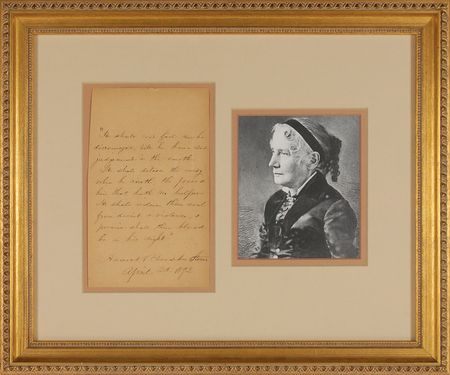 "He shall not fail nor be
discouraged, till he have set
judgment in the earth.
He shall deliver the needy
when he crieth the poor &
him that hath no helper.
He shall redeem their soul
from deceit & violence, &
precious shall their blood
be in his sight"
Harriet Beecher Stowe
April